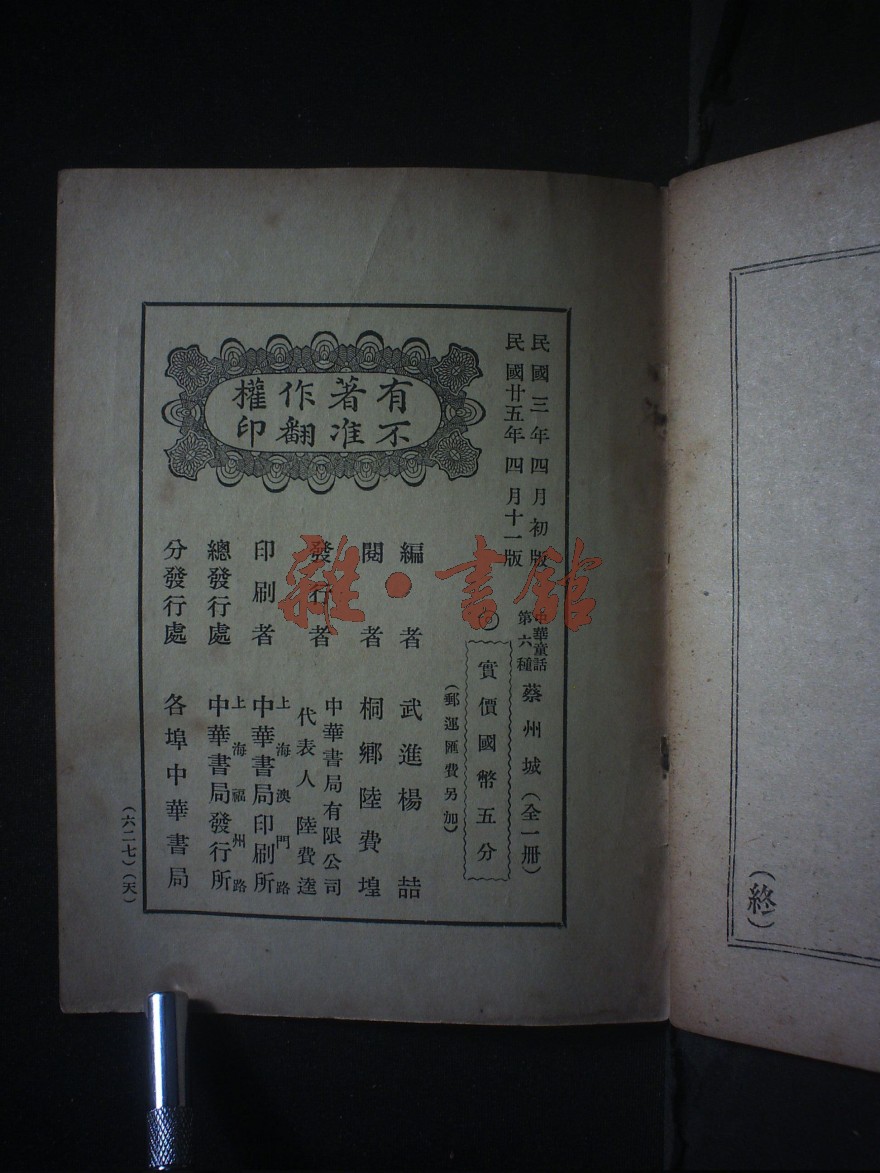 民國三年四月初版
民國廿五年四月十一版
中華童話
第六種
蔡州城(全一册)
實價國幣五分
(郵運匯費另加)
有著作權
不准翻印
編者 武進楊喆
閱者 桐鄉陸費堭
發行者 中華書局有限公司
代表人 陸費逵
印刷者 上海澳門路
中華書局印刷所
總發行處 上海福州路
中華書局發行所
分發行處 各埠中華書局
(六二七)(天)
(終)
雜·書館